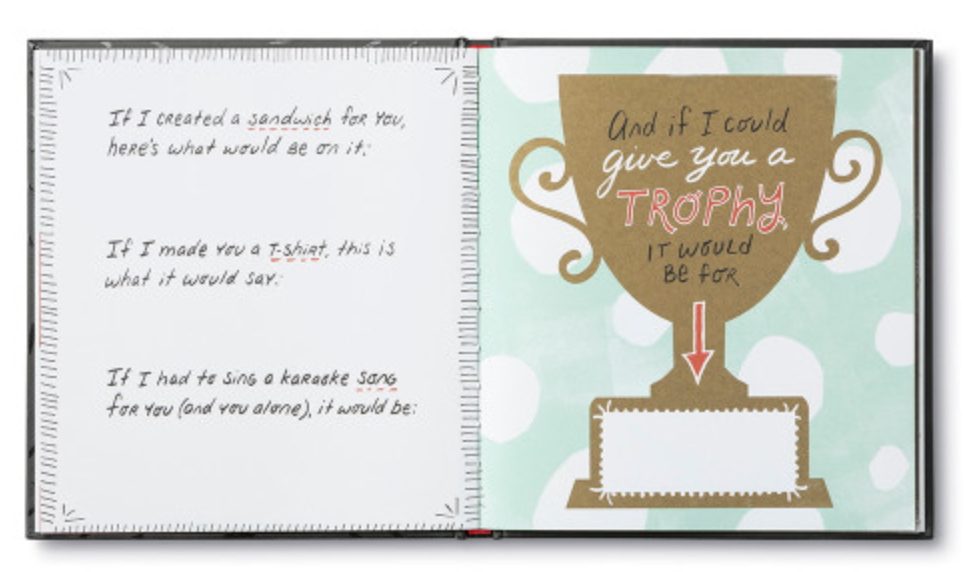 If I created a sandwich for you,
here's what would be on it:
If I made you a T-shirt, this is
what it would say:
If I had to sing a karaoke song
for you (and you alone), it would be:
And if I could
give you a
TROPHY,
IT WOULD
BE FOR